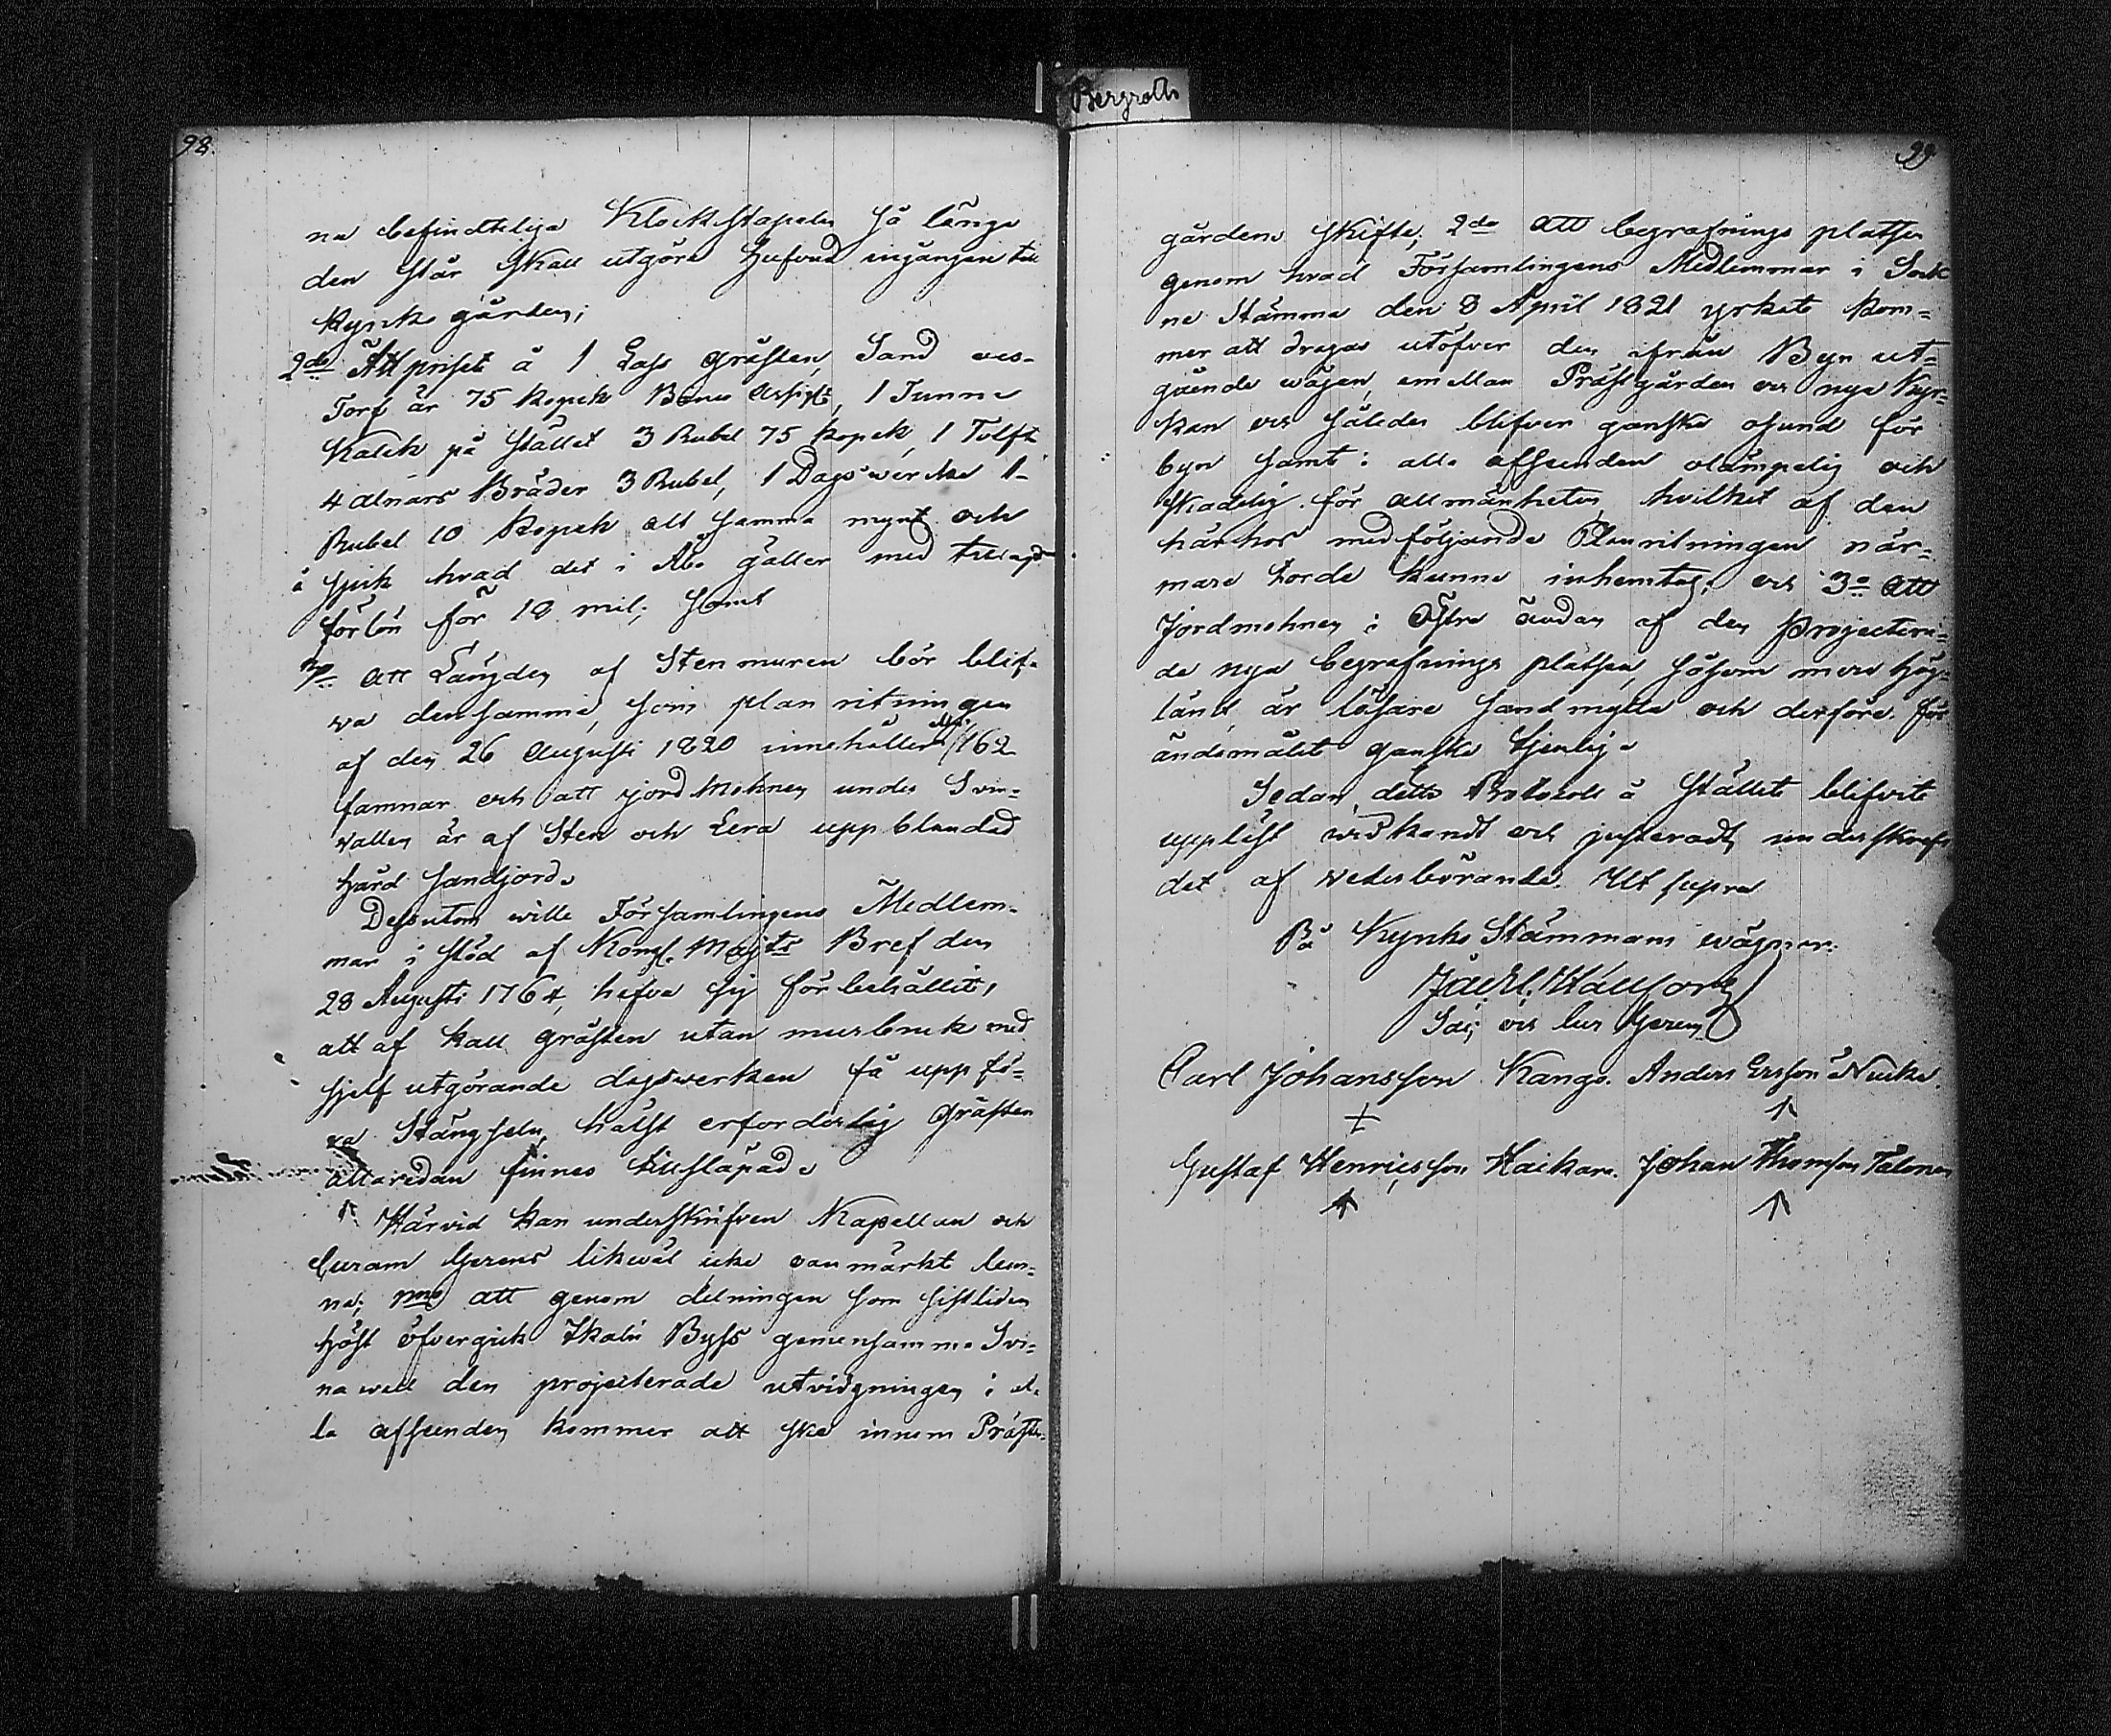 Bergroth
98.
na befindteliga Klockstapeln så länge
den står skall utgöra Hufvud ingången till
Kyrko gården;
2do Att priset å 1 Lass gråsten, Sand och
Torf är 75 kopek Banco Assigt, 1 Tunna
Kalck på stället 3 Rubel 75 kopek, 1 Tolft
4 alnars Bräder 3 Rubel, 1 Dagswercke 1
Rubel 10 Kopek allt samma mynt och
å spik hvad det i Åbo gäller med tillagd
förlön för 10 mil; samt
att Längden af Stenmuren bör blif-
va densamma, som plan ritningen
af den 26 Augusti 1820 innehåller 162
famnar och att jord Mohnen under Svin-
vallen är af Sten och Lera uppblandad
hård sandjord.
Dessutom wille Församlingens Medlem-
mar i stöd af Kongl. Majts Bref den
28 Augusti 1764, hafva sig förbehållit,
att af kall gråsten utan murbruk med
sjelf utgörande dagswerken få uppfö-
ra Stängseln, hälst erforderlig Gråsten
allaredan finnes tilsläpad.
Härvid kan underskrifven Kapellan och
Curam Gerens likwäl icke oanmärkt lem-
na; 1mo att genom delningen som sistliden
höst öfvergick Ikalis Byss gemensamma Svi-
na wall den projecterade utvidgningen i al-
la affseenden kommer att ske innom Präste-
99
gårdens skifte; 2do att begrafnings platsen
genom hvad Församlingens Medlemmar i Sock-
ne Stämma den 8 April 1821 yrkat kom-
mer att dragas utöfver den ifrån Byn ut-
gående wägen, emellan Prästgården och nya Kyr-
kan och således blifver ganska osund för
byn samt i alla affseenden olämpelig och
skadelig för allmänheten, hvilket af den
härhos medföljande Planritningen när-
mare torde kunna inhemtas; och 3o att
Jordmohnen i Östra ändan af den Projecteri-
de nya begrafnings platsen, såsom mera hög-
länd, är lösare sand mylla och derföre för
ändamålet ganska tjenlig.
Sedan detta Protokoll å stället blifvit
uppläst widkändt och justeradt, underskrefs
det af wederbörande. Ut supra
På Kyrko Stämmans wägnar:
Jac. Hallfors
Sac. och Cur Gerens
Carl Johansson Kangs. Anders Ersson Nucka.
Gustaf Henricsson Haikara. Johan Thomson Talonen